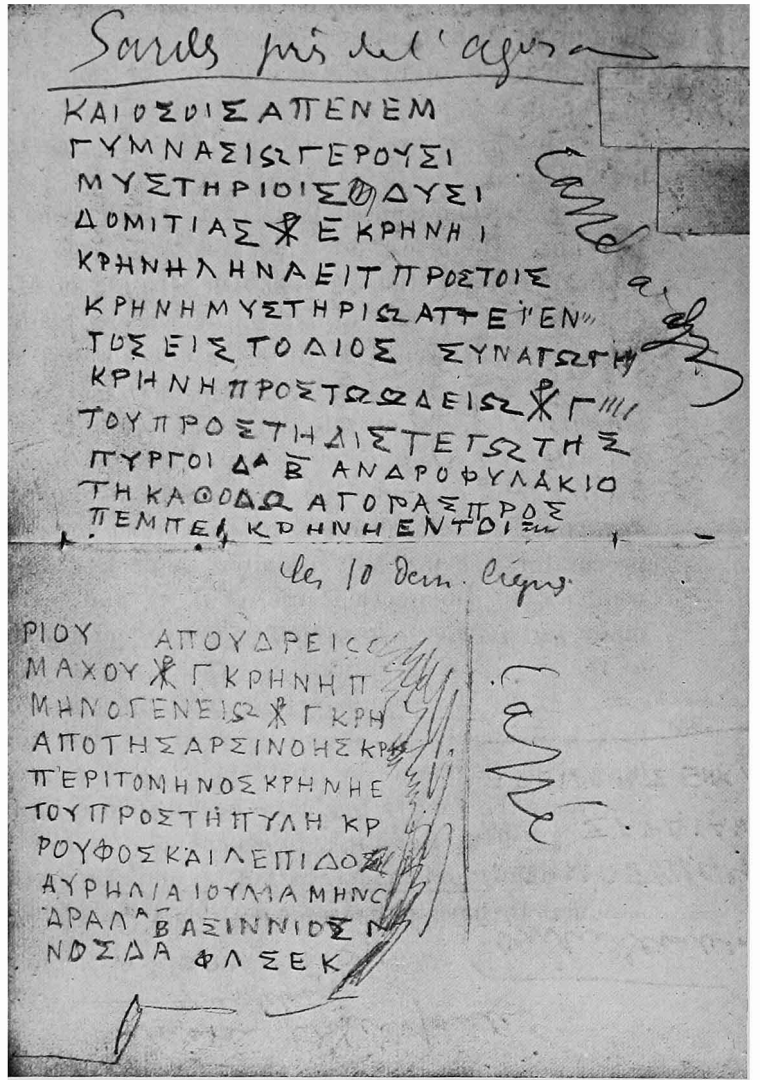 Sardes près de l'agora
ΚΑΙΟΣΟΙΣΑΠΕΝΕΜ
ΓΥΜΝΑΣΙΩΓΕΡΟΥΣΙ
ΜΥΣΤΗΡΙΟΙΣ ΔΥΣΙ
ΔΟΜΙΤΙΑΣ ⳩ Ε ΚΡΗΝΗΙ
ΚΡΗΝΗΛΗΝΑΕΙΤ ΠΡΟΣΤΟΙΣ
ΚΡΗΝΗΜΥΣΤΗΡΙΩ
ΤΟΣΕΙΣΤΟΔΙΟΣ ΣΥΝΑΓΩΓΗ
ΚΡΗΝΗΠΡΟΣΤΩΩΔΕΙΩ ⳩ Γ
ΤΟΥΠΡΟΣΤΗΔΙΣΤΕΓΩΤΗΣ
ΠΥΡΓΟΙ ΔΑ Β ΑΝΔΡΟΦΥΛΑΚΙΟ
ΤΗΚΑΘΟΔΩ ΑΓΟΡΑΣΠΡΟΣ
ΠΕΜΠΕ ΚΡΗΝΗΕΝΤΟΙ
les 10 dern. lignes
ΡΙΟΥ ΑΠΟΥΔΡΕΙΟ
ΜΑΧΟΥ ⳩ Γ ΚΡΗΝΗΠ
ΜΗΝΟΓΕΝΕΙΩ ⳩ Γ ΚΡΗ
ΑΠΟΤΗΣΑΡΣΙΝΟΗΣΚΡΗ
ΠΕΡΙΤΟΜΗΝΟΣΚΡΗΝΗΕ
ΤΟΥΠΡΟΣΤΗΠΥΛΗ ΚΡ
ΡΟΥΦΟΣΚΑΙΛΕΠΙΔΟΣ
ΑΥΡΗΛΙΑΙΟΥΛΙΑΜΗΝΟ
ΔΡΑΛΑ Β ΑΣΙΝΝΙΟΣΝ
ΝΟΣΔΑ ΦΛΣΕΚ